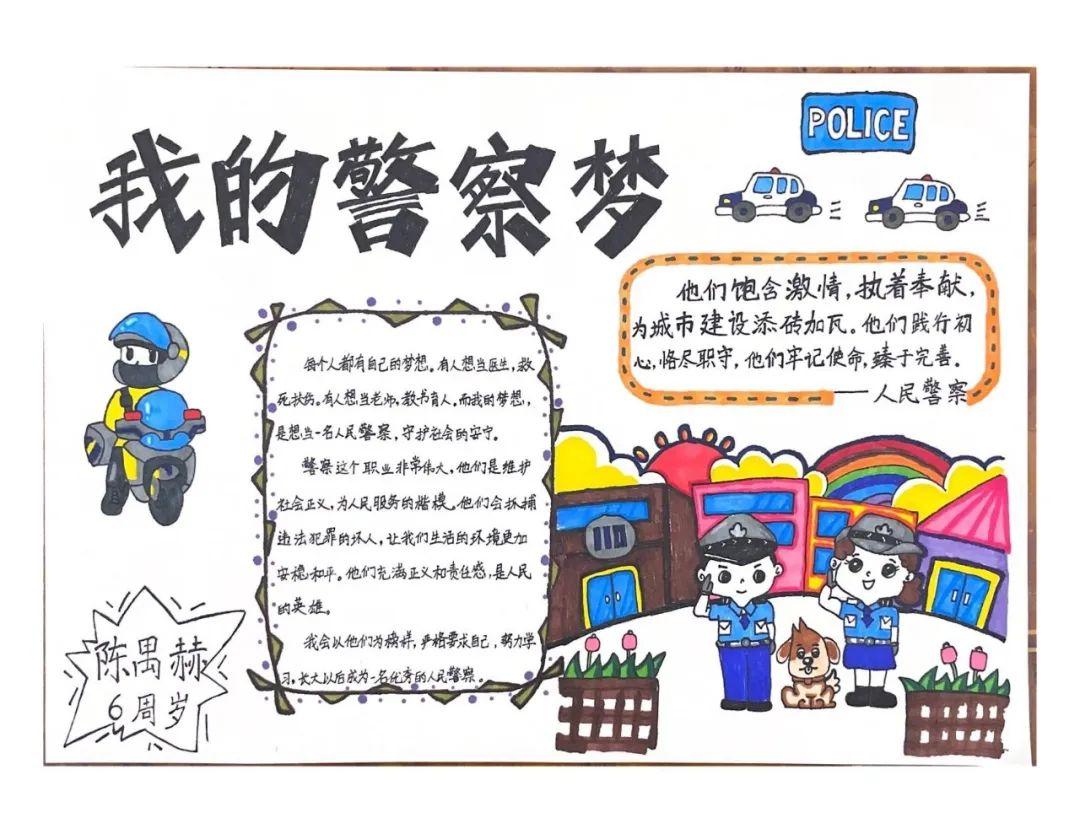 我的警察梦
POLICE
他们饱含激情，执着奉献，
为城市建设添砖加瓦。他们践行初
心，恪尽职守，他们牢记使命，臻于完善。
——人民警察
每个人都有自己的梦想。有人想当医生，救
死扶伤。有人想当老师，教书育人。而我的梦想，
是想当一名人民警察，守护社会的安宁。
警察这个职业非常伟大。他们是维护
社会正义，为人民服务的楷模。他们会抓捕
违法犯罪的坏人，让我们生活的环境更加
安稳和平。他们充满正义和责任感，是人民
的英雄。
我会以他们为榜样，严格要求自己，努力学
习，长大以后成为一名优秀的人民警察。
陈禺赫
6周岁